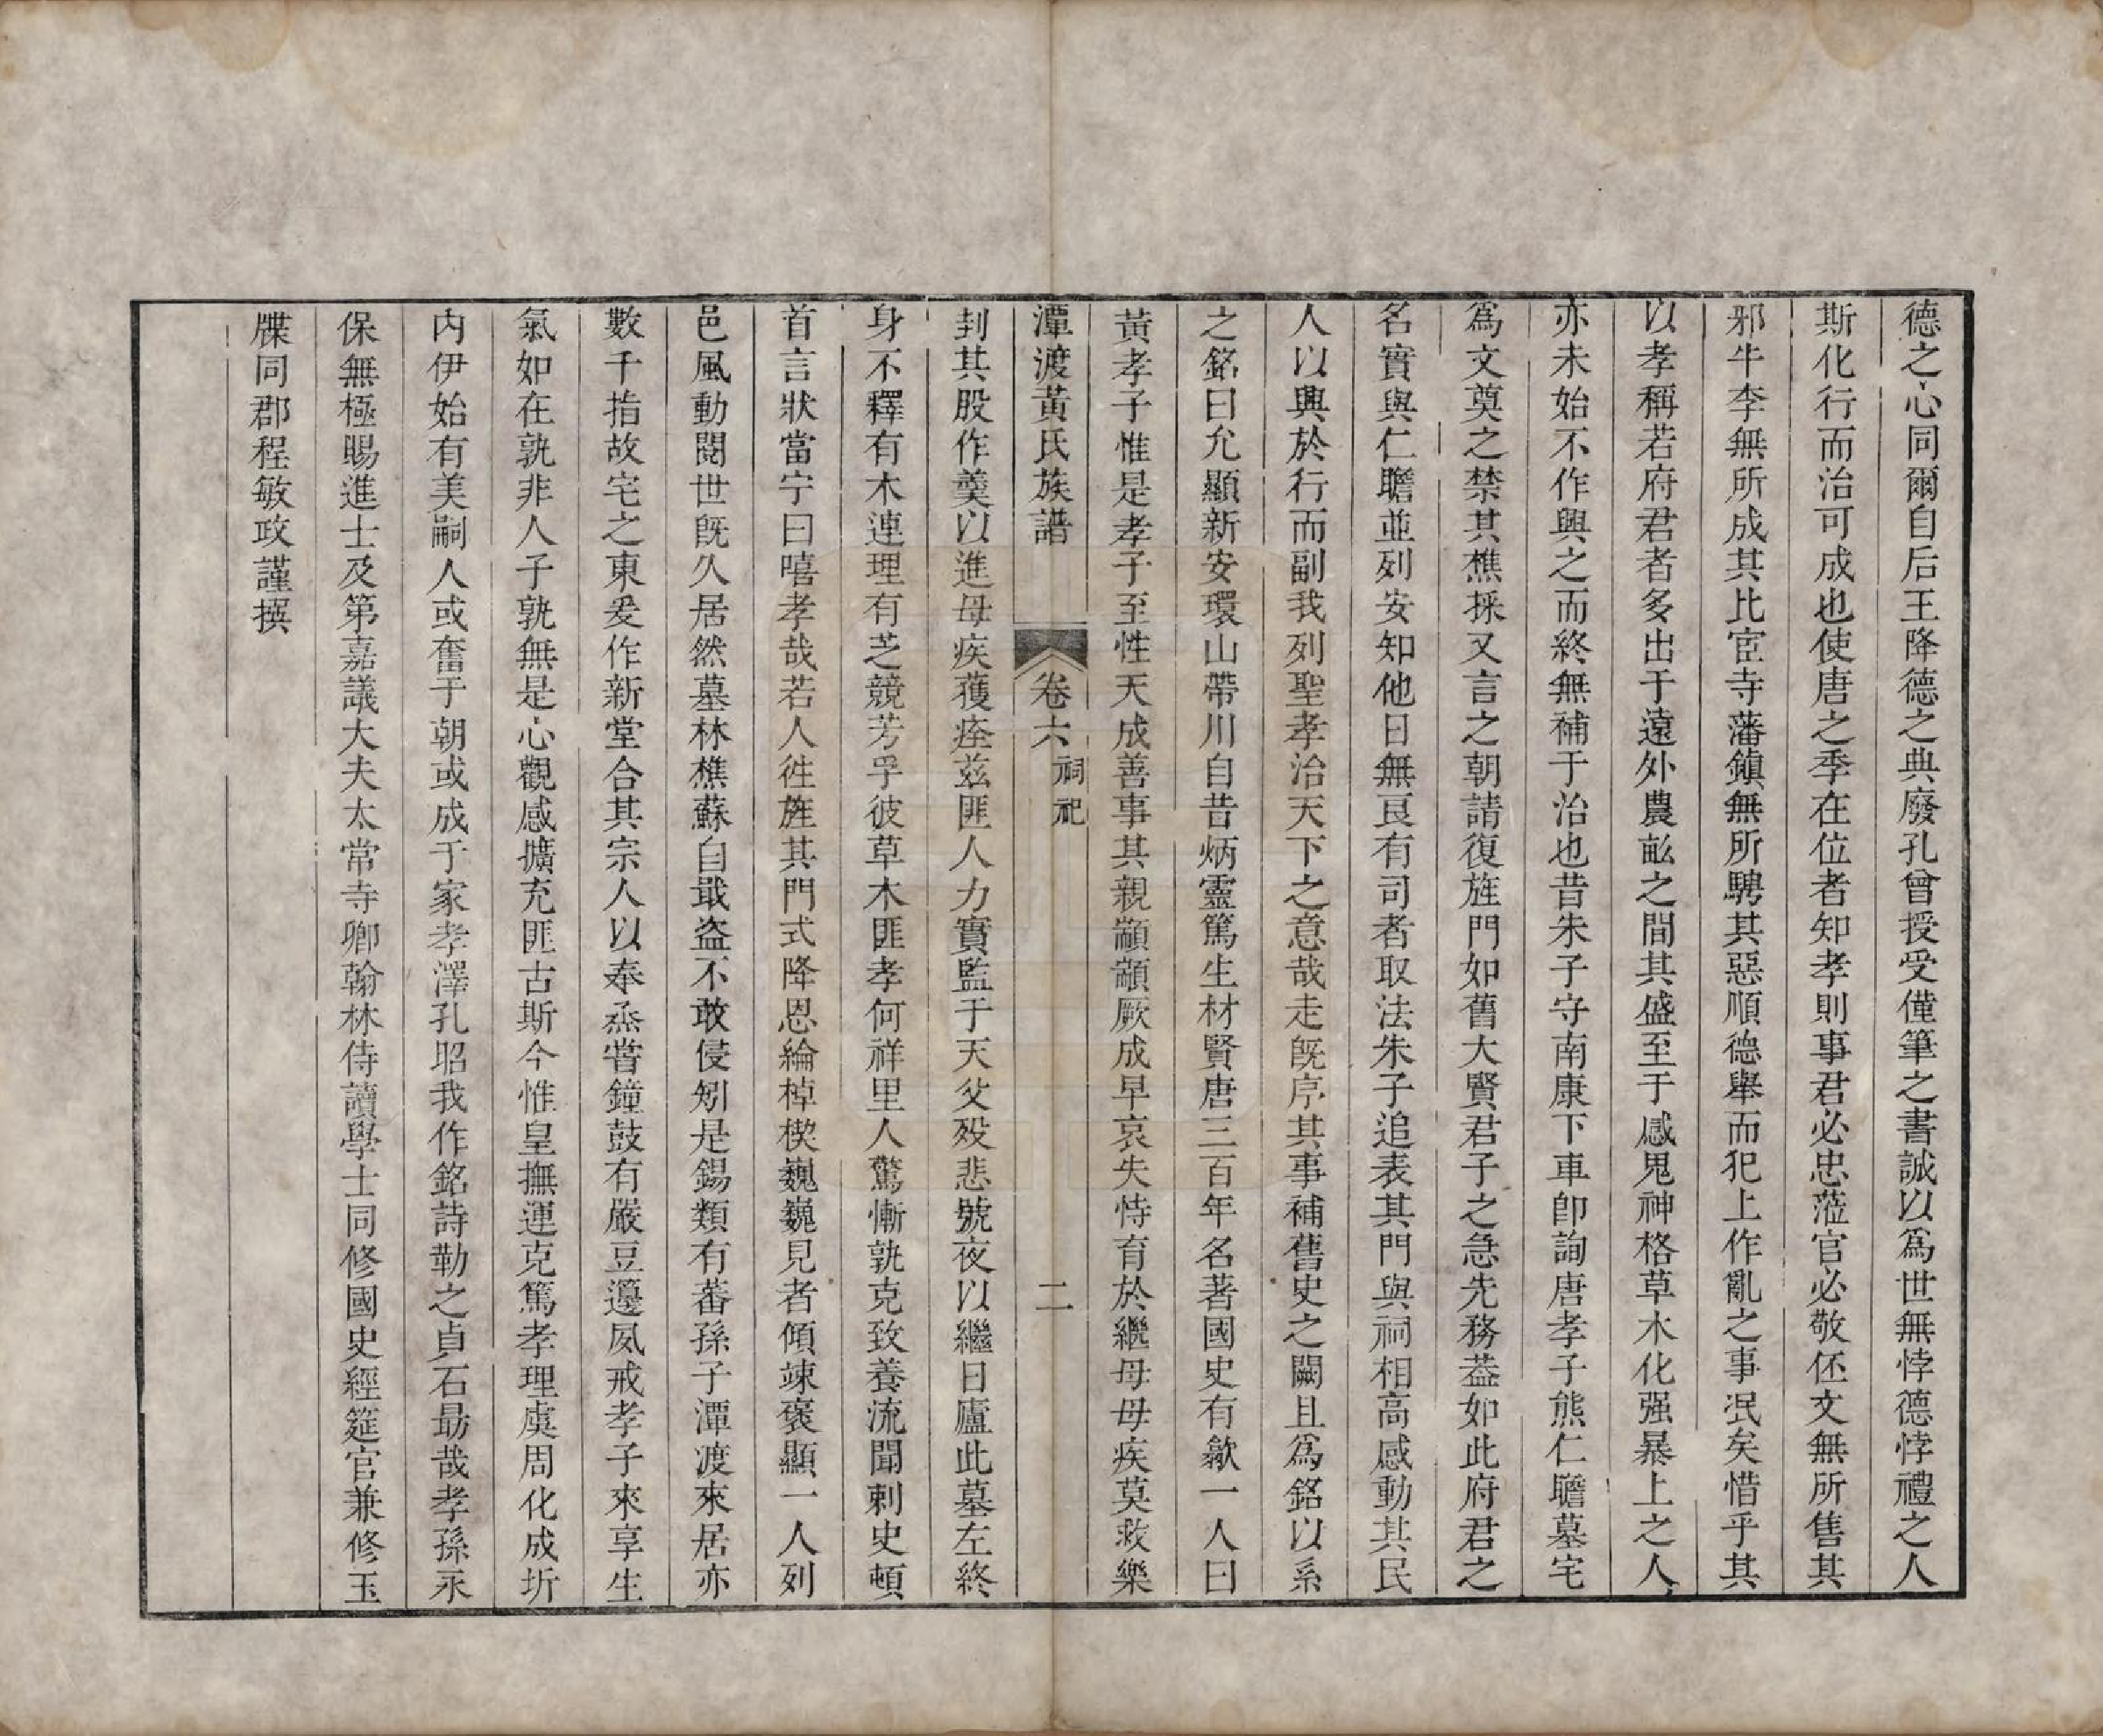 德之心同爾自后王降德之典廢孔曾授受僅筆之書誠以爲世無悖德悖禮之人
斯化行而治可成也使唐之季在位者知孝則事君必忠蒞官必敬伾文無所售其
邪牛李無所成其比宦寺藩鎮無所騁其惡順德舉而犯上作亂之事泯矣惜乎其
以孝稱若府君者多出于遠外農畝之間其盛至于感鬼神格草木化强暴上之人
亦未始不作興之而終無補于治也昔朱子守南康下車卽詢唐孝子熊仁瞻墓宅
爲文奠之禁其樵採又言之朝請復旌門如舊大賢君子之急先務葢如此府君之
名實與仁瞻並列安知他日無良有司者取法朱子追表其門與祠相高感動其民
人以興於行而副我列聖孝治天下之意哉走旣序其事補舊史之闕且爲銘以系
之銘曰允顯新安環山帶川自昔炳靈篤生材賢唐三百年名著國史有歙一人曰
黃孝子惟是孝子至性天成善事其親顓顓厥成早哀失恃育於繼母母疾莫救樂
潭渡黃氏族譜 卷六 祠祀 二
刲其股作羹以進母疾獲痊兹匪人力實監于天父歿悲號夜以繼日廬此墓左終
身不釋有木連理有芝競芳乎彼草木匪孝何祥里人驚慚孰克致養流聞刺史頓
首言狀當宁曰嘻孝哉若人往旌其門式降恩綸棹楔巍巍見者傾竦褒顯一人列
邑風動閱世旣久居然墓林樵蘇自戢盜不敢侵矧是錫類有蕃孫子潭渡來居亦
數千指故宅之東爰作新堂合其宗人以奉烝嘗鐘鼓有嚴豆籩夙戒孝子來享生
氣如在孰非人子孰無是心觀感擴充匪古斯今惟皇撫運克篤孝理虞周化成圻
内伊始有美嗣人或奮于朝或成于家孝澤孔昭我作銘詩勒之貞石勗哉孝孫永
保無極賜進士及第嘉議大夫太常寺卿翰林侍讀學士同修國史經筵官兼修玉
牒同郡程敏政謹撰